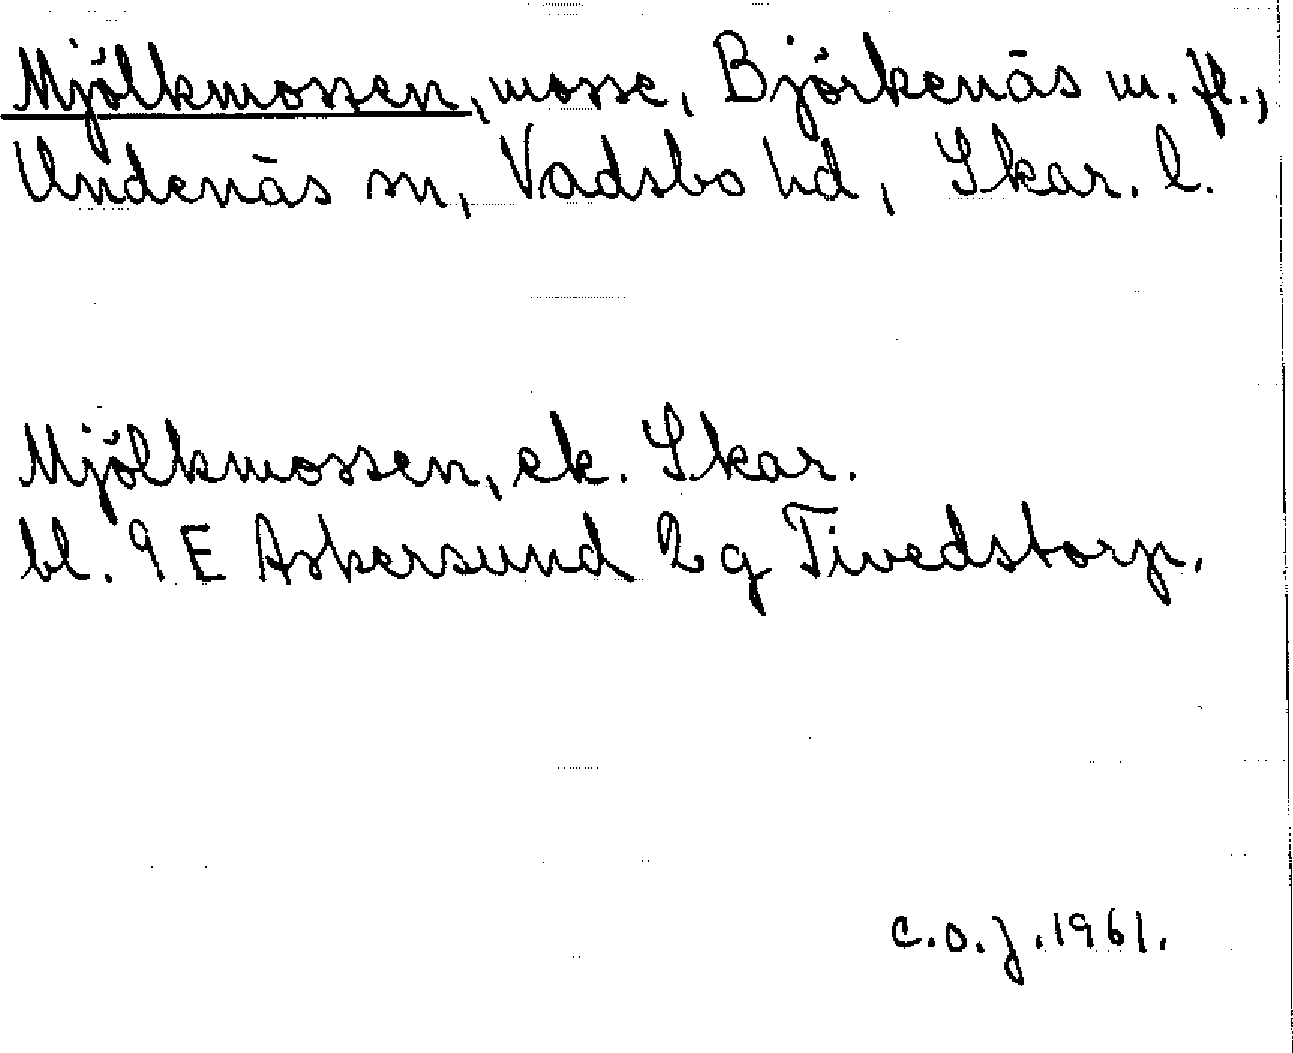 Mjölkmossen, mosse, Björkenäs m. fl.,
Undenäs sn, Vadsbo hd, Skar. l.
Mjölkmossen, ek. Skar.
bl. 9 E Askersund 2 g Tivedstorp.
C.O.J. 1961.